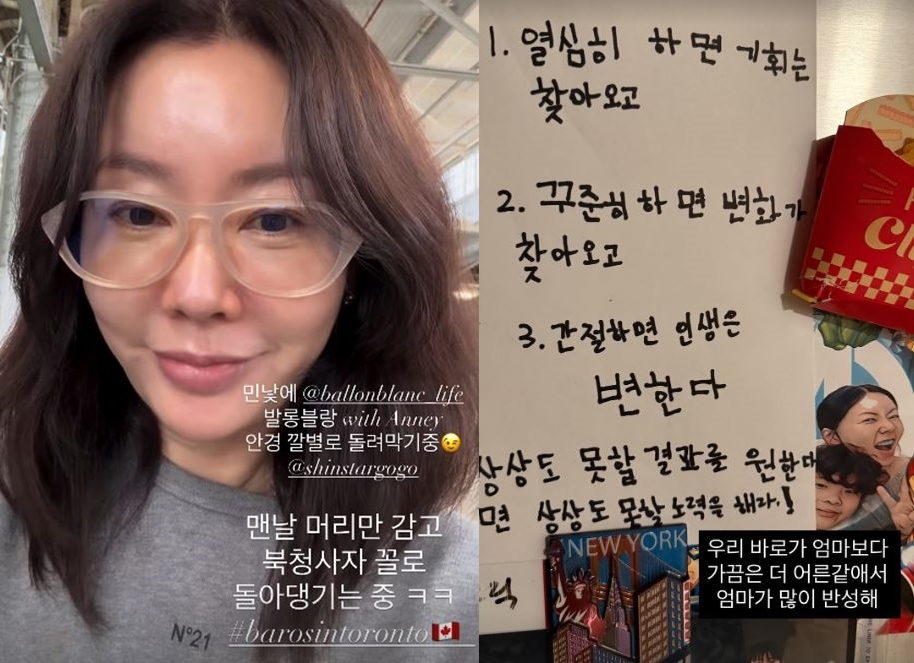 민낯에 @ballonblanc_life
발롱블랑 with Anney
안경 깔별로 돌려막기중😉
@shinstargogo
맨날 머리만 감고
북청사자 꼴로
돌아댕기는 중 ㅋㅋ
#barosintoronto🇨🇦
Nº21
1. 열심히 하면 기회는
찾아오고
2. 꾸준히 하면 변화가
찾아오고
3. 간절하면 인생은
변한다
상상도 못할 결과를 원한다
면 상상도 못할 노력을 해라!
NEW YORK
우리 바로가 엄마보다
가끔은 더 어른같애서
엄마가 많이 반성해